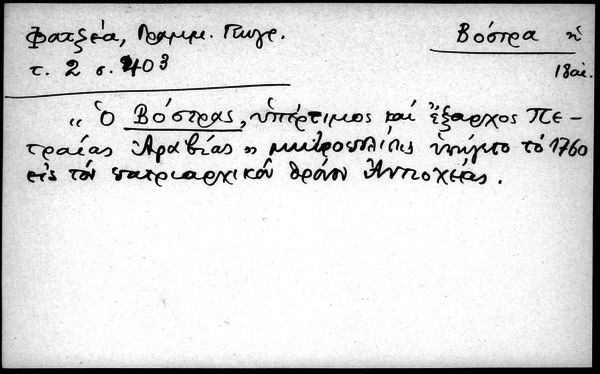 Φατζέα, Γραμμ. Γεωγρ.
Βόστρα ἡ
τ. 2 σ. 403
18αι.
"Ὁ Βόστρας, ὑπέρτιμος καὶ ἔξαρχος Πε-
τραίας Ἀραβίας" μητροπολίτης ὑπήγετο τὸ 1760
εἰς τὸν πατριαρχικὸν θρόνον Ἀντιοχείας.